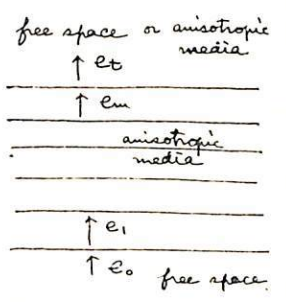 free space or anisotropic
media
↑ et
↑ em
anisotropic
media
↑ e1
↑ e0
free space